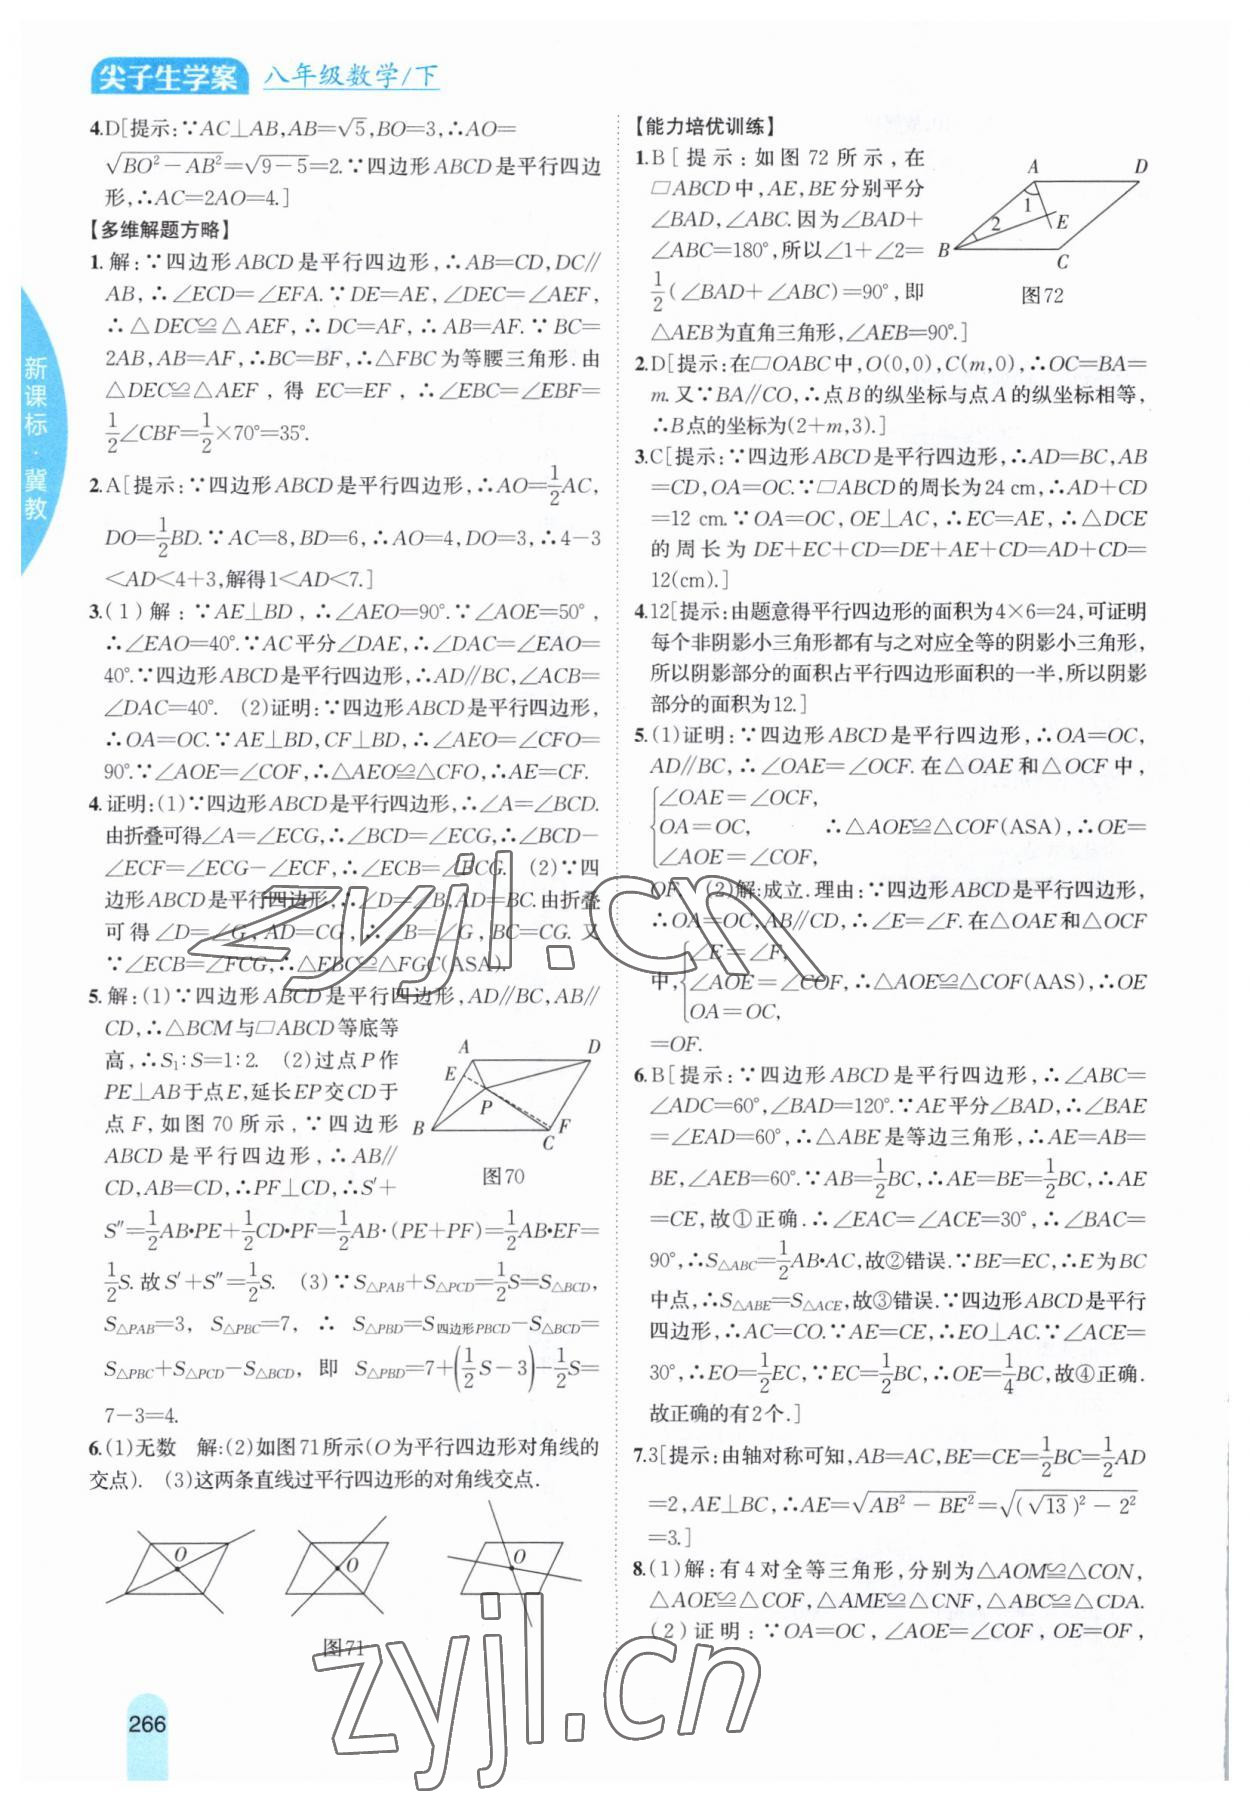 尖子生学案 八年级数学/下
新课标·冀教
4.D[提示:∵AC⊥AB,AB=√5,BO=3,∴AO=
√(BO²-AB²)=√(9-5)=2.∵四边形ABCD是平行四边
形,∴AC=2AO=4.]
【多维解题方略】
1.解:∵四边形ABCD是平行四边形,∴AB=CD,DC∥
AB,∴∠ECD=∠EFA.∵DE=AE,∠DEC=∠AEF,
∴△DEC≌△AEF,∴DC=AF,∴AB=AF.∵BC=
2AB,AB=AF,∴BC=BF,∴△FBC为等腰三角形.由
△DEC≌△AEF,得EC=EF,∴∠EBC=∠EBF=
1/2∠CBF=1/2×70°=35°.
2.A[提示:∵四边形ABCD是平行四边形,∴AO=1/2AC,
DO=1/2BD.∵AC=8,BD=6,∴AO=4,DO=3,∴4-3
<AD<4+3,解得1<AD<7.]
3.(1)解:∵AE⊥BD,∴∠AEO=90°.∵∠AOE=50°,
∴∠EAO=40°.∵AC平分∠DAE,∴∠DAC=∠EAO=
40°.∵四边形ABCD是平行四边形,∴AD∥BC,∠ACB=
∠DAC=40°. (2)证明:∵四边形ABCD是平行四边形,
∴OA=OC.∵AE⊥BD,CF⊥BD,∴∠AEO=∠CFO=
90°.∵∠AOE=∠COF,∴△AEO≌△CFO,∴AE=CF.
4.证明:(1)∵四边形ABCD是平行四边形,∴∠A=∠BCD.
由折叠可得∠A=∠ECG,∴∠BCD=∠ECG,∴∠BCD-
∠ECF=∠ECG-∠ECF,∴∠ECB=∠FCG. (2)∵四
边形ABCD是平行四边形,∴∠D=∠B,AD=BC.由折叠
可得∠D=∠G,AD=CG,∴∠B=∠G,BC=CG.又
∵∠ECB=∠FCG,∴△EBC≌△FGC(ASA).
5.解:(1)∵四边形ABCD是平行四边形,AD∥BC,AB∥
CD,∴△BCM与□ABCD等底等
高,∴S₁:S=1:2. (2)过点P作
PE⊥AB于点E,延长EP交CD于
点F,如图70所示,∵四边形
ABCD是平行四边形,∴AB∥
CD,AB=CD,∴PF⊥CD,∴S′+
A D E P B C F
图70
S″=1/2AB·PE+1/2CD·PF=1/2AB·(PE+PF)=1/2AB·EF=
1/2S.故S′+S″=1/2S. (3)∵S△PAB+S△PCD=1/2S=S△BCD,
S△PAB=3, S△PBC=7, ∴ S△PBD=S四边形PBCD-S△BCD=
S△PBC+S△PCD-S△BCD, 即 S△PBD=7+(1/2S-3)-1/2S=
7-3=4.
6.(1)无数 解:(2)如图71所示(O为平行四边形对角线的
交点). (3)这两条直线过平行四边形的对角线交点.
O O O
图71
266
【能力培优训练】
1.B[提示:如图72所示,在
□ABCD中,AE,BE分别平分
∠BAD,∠ABC.因为∠BAD+
∠ABC=180°,所以∠1+∠2=
1/2(∠BAD+∠ABC)=90°,即
△AEB为直角三角形,∠AEB=90°.]
A D 1 2 E B C
图72
2.D[提示:在□OABC中,O(0,0),C(m,0),∴OC=BA=
m.又∵BA∥CO,∴点B的纵坐标与点A的纵坐标相等,
∴B点的坐标为(2+m,3).]
3.C[提示:∵四边形ABCD是平行四边形,∴AD=BC,AB
=CD,OA=OC.∵□ABCD的周长为24 cm,∴AD+CD
=12 cm.∵OA=OC,OE⊥AC,∴EC=AE,∴△DCE
的周长为DE+EC+CD=DE+AE+CD=AD+CD=
12(cm).]
4.12[提示:由题意得平行四边形的面积为4×6=24,可证明
每个非阴影小三角形都有与之对应全等的阴影小三角形,
所以阴影部分的面积占平行四边形面积的一半,所以阴影
部分的面积为12.]
5.(1)证明:∵四边形ABCD是平行四边形,∴OA=OC,
AD∥BC,∴∠OAE=∠OCF.在△OAE和△OCF中,
{∠OAE=∠OCF,
OA=OC, ∴△AOE≌△COF(ASA),∴OE=
∠AOE=∠COF,
OF. (2)解:成立.理由:∵四边形ABCD是平行四边形,
∴OA=OC,AB∥CD,∴∠E=∠F.在△OAE和△OCF
{∠E=∠F,
中,∠AOE=∠COF,∴△AOE≌△COF(AAS),∴OE
OA=OC,
=OF.
6.B[提示:∵四边形ABCD是平行四边形,∴∠ABC=
∠ADC=60°,∠BAD=120°.∵AE平分∠BAD,∴∠BAE
=∠EAD=60°,∴△ABE是等边三角形,∴AE=AB=
BE,∠AEB=60°.∵AB=1/2BC,∴AE=BE=1/2BC,∴AE
=CE,故①正确.∴∠EAC=∠ACE=30°,∴∠BAC=
90°,∴S△ABC=1/2AB·AC,故②错误.∵BE=EC,∴E为BC
中点,∴S△ABE=S△ACE,故③错误.∵四边形ABCD是平行
四边形,∴AC=CO.∵AE=CE,∴EO⊥AC.∵∠ACE=
30°,∴EO=1/2EC,∵EC=1/2BC,∴OE=1/4BC,故④正确.
故正确的有2个.]
7.3[提示:由轴对称可知,AB=AC,BE=CE=1/2BC=1/2AD
=2,AE⊥BC,∴AE=√(AB²-BE²)=√((√13)²-2²)
=3.]
8.(1)解:有4对全等三角形,分别为△AOM≌△CON,
△AOE≌△COF,△AME≌△CNF,△ABC≌△CDA.
(2)证明:∵OA=OC,∠AOE=∠COF,OE=OF,
zyjl.cn
zyjl.cn